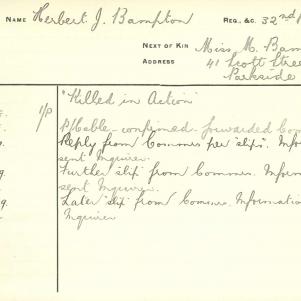 NAME Herbert J. Bampton REG. &C. 32nd
NEXT OF KIN Miss. M. Bam
ADDRESS 41 Scott Stree
Parkside
"Killed in Action"
1/P P/Cable - confirmed. forwarded Co
Reply from Commrs per slip. Inform
sent Inquirer.
g. Further slip from Commrs. Inform
sent Inquirer.
g. Later slip from Commrs. Informatio
Inquirer